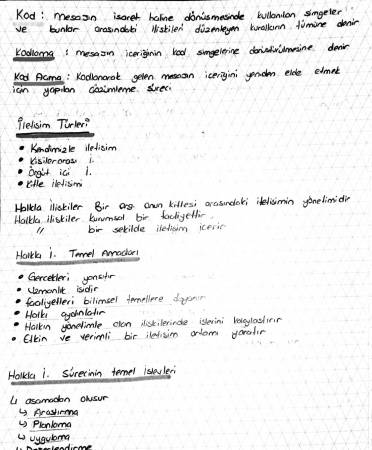 Kod : mesajın işaret haline dönüşmesinde kullanılan simgeler
ve bunlar arasındaki ilişkileri düzenleyen kuralların tümüne denir
Kodlama : mesajın içeriğinin kod simgelerine dönüştürülmesine denir
Kod Açma : Kodlanarak gelen mesajın içeriğini yeniden elde etmek
için yapılan çözümleme süreci
İletişim Türleri
• Kendimizle iletişim
• Kişilerarası i.
• Örgüt içi i.
• Kitle iletişimi
Halkla ilişkiler Bir org. onun kitlesi arasındaki iletişimin yönetimidir
Halkla ilişkiler kurumsal bir faaliyettir.
" bir şekilde iletişim içerir
Halkla İ. Temel Amaçları
• Gerçekleri yansıtır
• Uzmanlık işidir
• faaliyetleri bilimsel temellere dayanır
• Halkı aydınlatır
• Halkın yönetimle olan ilişkilerinde işlerini kolaylaştırır
• Etkin ve verimli bir iletişim ortamı yaratır
Halkla İ. Sürecinin temel işlevleri
4 aşamadan oluşur
↳ Araştırma
↳ Planlama
↳ uygulama
↳ Değerlendirme